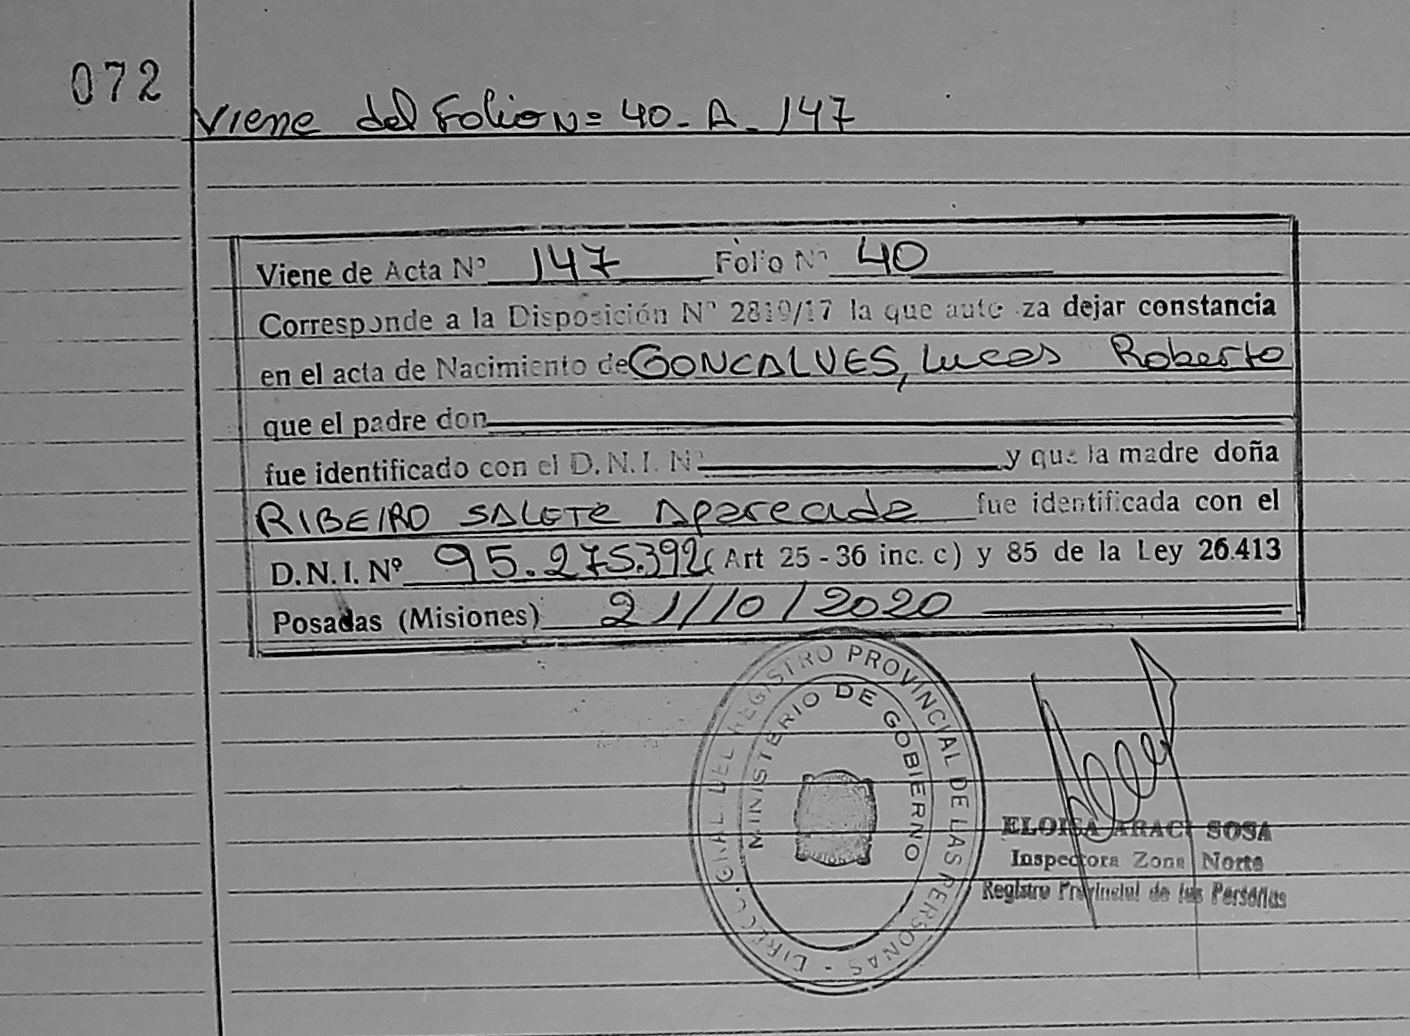 072
Viene del Folio Nº 40 - A - 147
Viene de Acta Nº 147 Folio Nº 40
Corresponde a la Disposición Nº 2819/17 la que auto za dejar constancia
en el acta de Nacimiento de GONCALVES, Lucas Roberto
que el padre don
fue identificado con el D.N.I. Nº y que la madre doña
RIBEIRO SALETE Aparecida fue identificada con el
D.N.I. Nº 95.275.392 (Art 25 - 36 inc. c) y 85 de la Ley 26.413
Posadas (Misiones) 21/10/2020
DIRECC. GRAL DEL REGISTRO PROVINCIAL DE LAS PERSONAS -
MINISTERIO DE GOBIERNO
ELOISA ARACI SOSA
Inspectora Zona Norte
Registro Provincial de las Personas